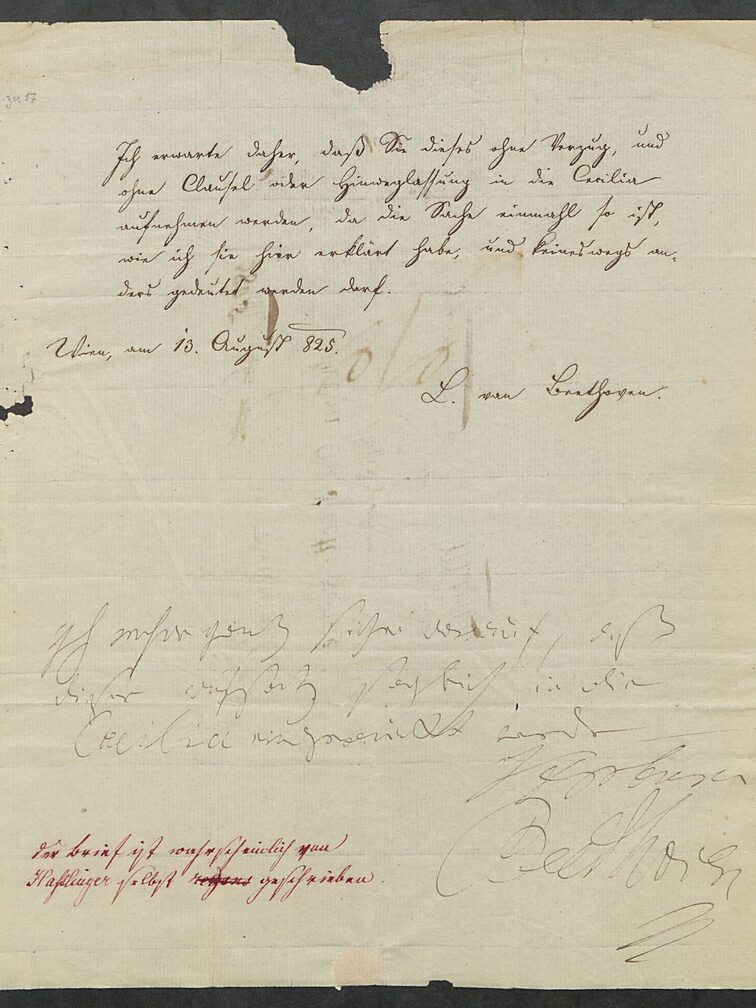 Ich erwarte daher, daß Sie dieses ohne Verzug, und
ohne Clausel oder Hinweglassung in die Cecilia
aufnehmen werden, da die Sache einmahl so ist,
wie ich sie hier erklärt habe, und keineswegs an-
ders gedeutet werden darf.
Wien, am 13. August 825.
L. van Beethoven.
Ich ganz sicher darauf, daß
dieser aufsatz sogleich in die
Caecilia eingerückt werde
Ihr
Beethoven
der Brief ist wahrscheinlich von
Haslinger selbst geschrieben.